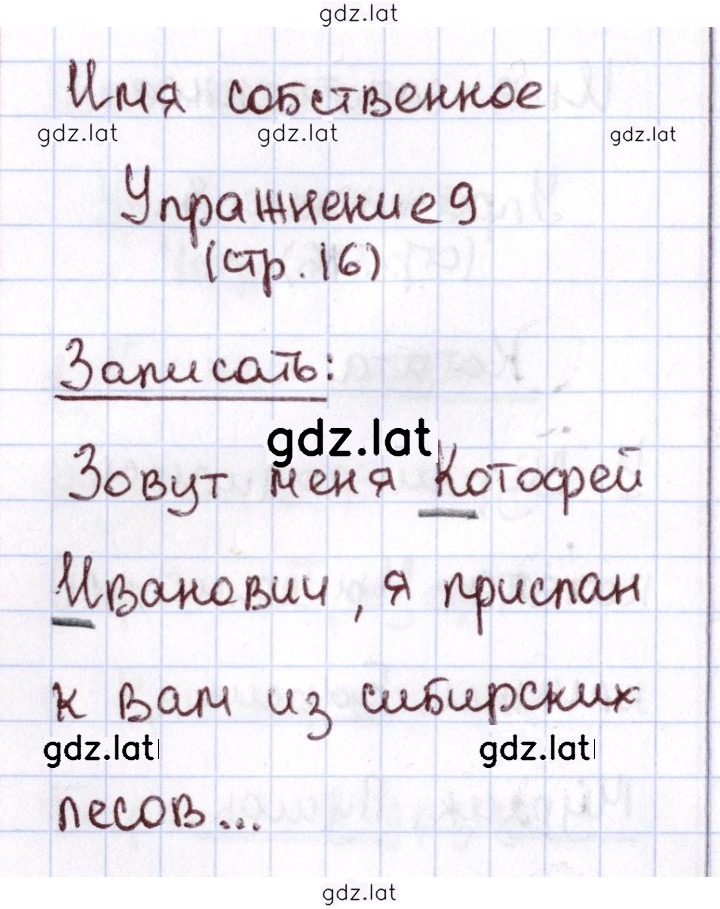 gdz.lat
Имя собственное
gdz.lat gdz.lat gdz.lat
Упражнение 9
(стр. 16)
Записать:
gdz.lat
Зовут меня Котофей
Иванович, я прислан
к вам из сибирских
gdz.lat gdz.lat
лесов...
gdz.lat